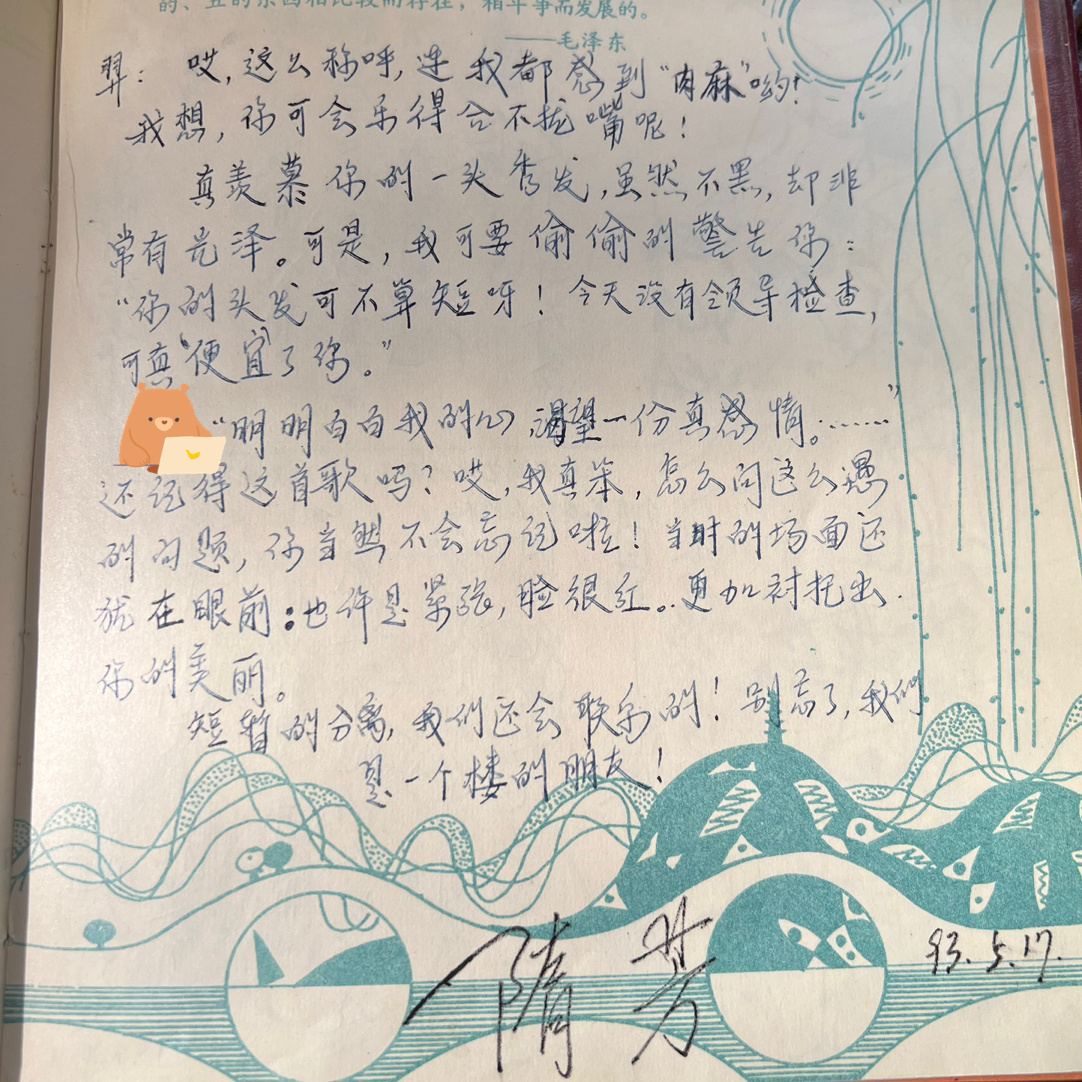 的、丑的东西相比较而存在，相斗争而发展的。
——毛泽东
羿：哎，这么称呼，连我都感到“肉麻”哟！
我想，你可会乐得合不拢嘴呢！
真羡慕你的一头秀发，虽然不黑，却非
常有光泽。可是，我可要偷偷的警告你：
“你的头发可不算短呀！今天没有领导检查，
可真“便宜”了你。”
“明明白白我的心，渴望一份真感情。……”
还记得这首歌吗？哎，我真笨，怎么问这么愚
的问题，你当然不会忘记啦！当时的场面还
犹在眼前：也许是紧张，脸很红。更加衬托出
你的美丽。
短暂的分离，我们还会联系的！别忘了，我们
是一个楼的朋友！
隋芳
93.5.17.